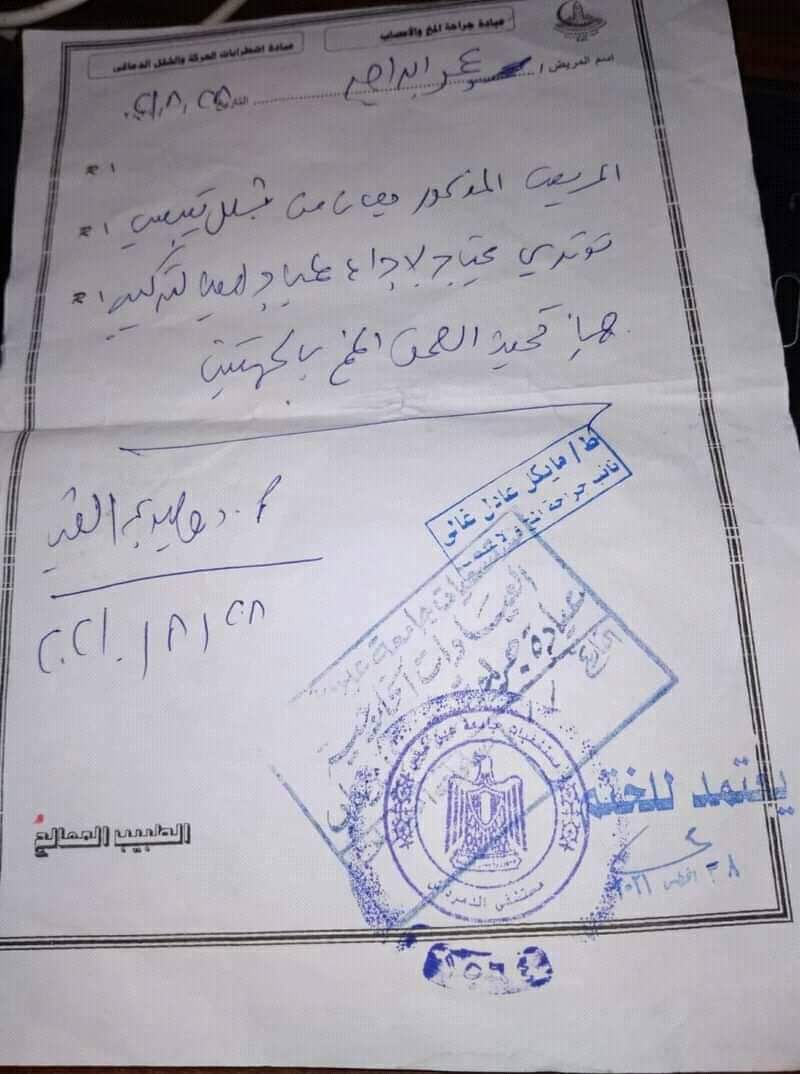 عيادة جراحة المخ والأعصاب
عيادة اضطرابات الحركة والشلل الدماغى
اسم المريض / عمر ابراهيم
التاريخ ٢٨ / ٨ / ٢٠٢١
المريض المذكور يعانى من شلل تيبسي
توترى يحتاج لإجراء عملية لتركيب
جهاز تحفيز العمق المخ بالجهتين
ط / مايكل عادل غالى
نائب جراحة المخ والأعصاب
٢٨ / ٨ / ٢٠٢١
مستشفيات جامعة عين شمس
العيادات الخارجية
عيادة جراحة
التاريخ
مستشفيات جامعة عين شمس
مستشفى الدمرداش
يعتمد للختم
٢٨ أغسطس ٢٠٢١
الطبيب المعالج